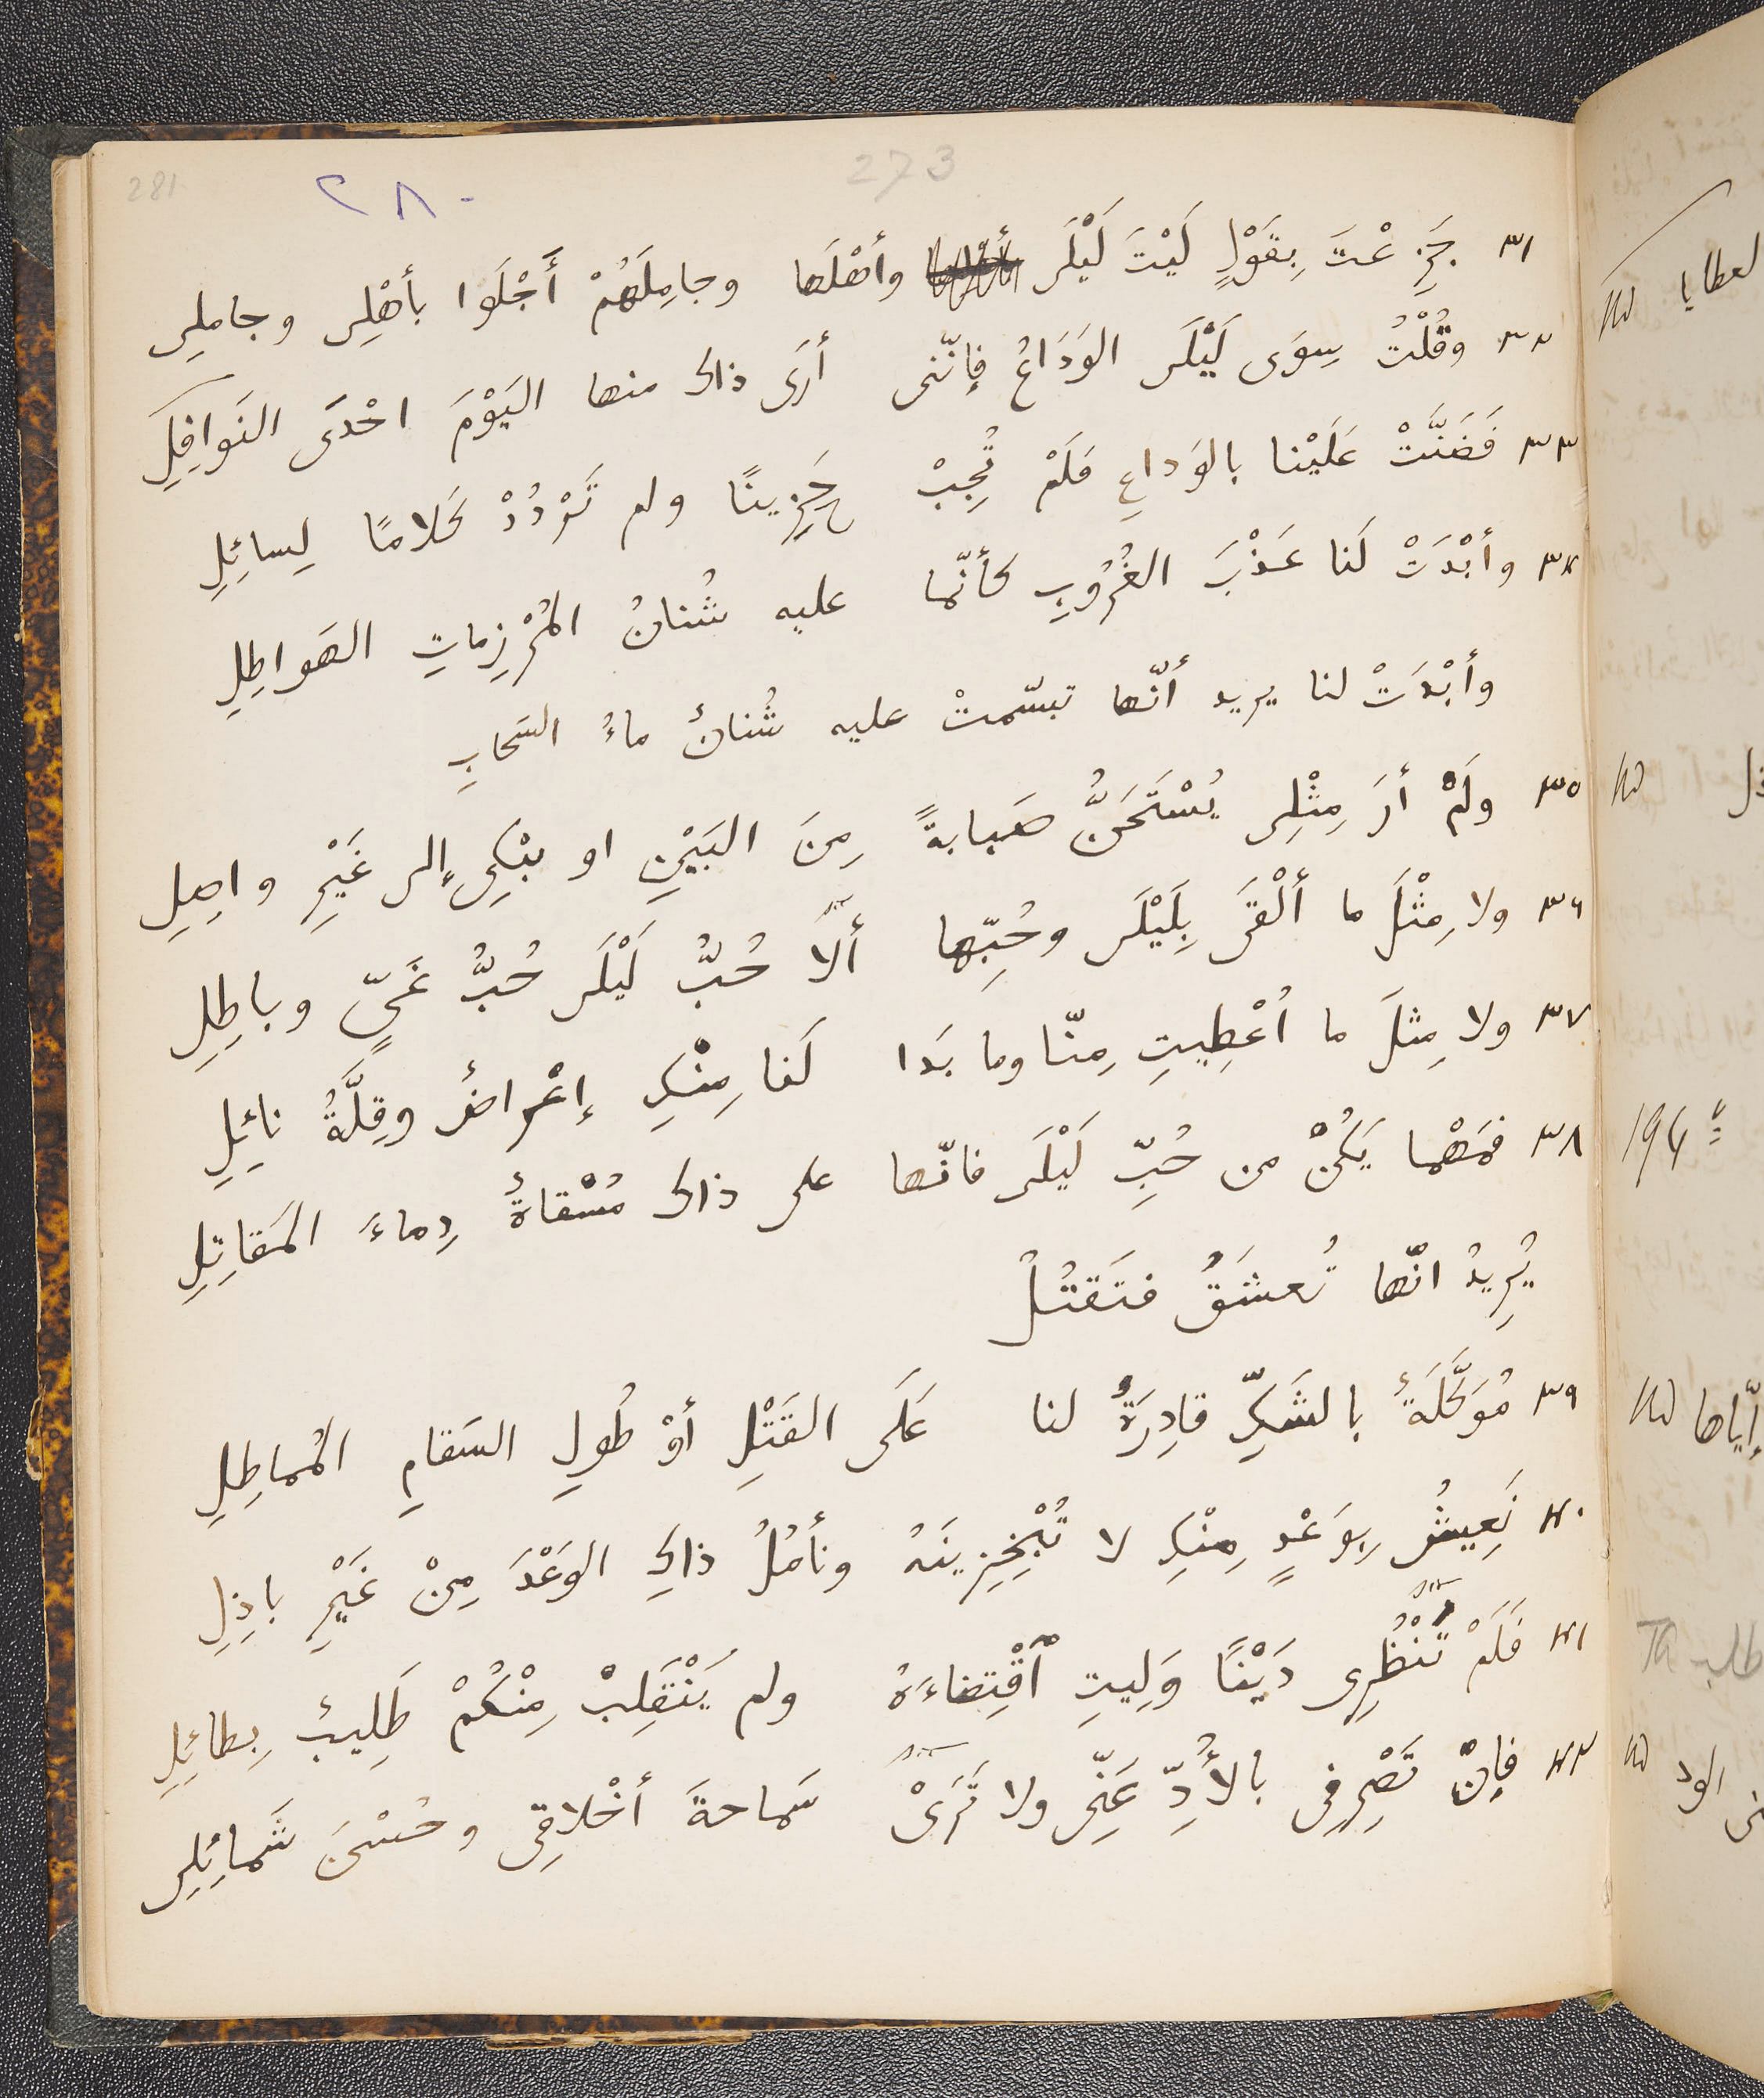 281 ٢٨٠ 273
٣١ جَزِعْتَ بِقَوْلٍ لَيْتَ لَيْلَى وأهْلَها وجامِلَهُمْ أَجْلَوا بأهْلِى وجاملِى
٣٢ وقُلْتُ سِوَى لَيْلَى الوَدَاعُ فإنّنى أرَى ذاك منها اليَوْمَ احْدَى النَوافِلِ
٣٣ فَضَنَّتْ عَلَيْنا بالوَداعِ فلَمْ تُجِبْ حَزِينًا ولم تَرْدُدْ كَلامًا لِسائِلِ
٣٤ وأبْدَتْ لَنا عَذْبَ الغُرُوبِ كأنّما عليه شُنانُ المُرْزِماتِ الهَواطِلِ
وأبْدَتْ لنا يريد أنّها تبسّمتْ عليه شُنانٌ ماءُ السَحابِ
٣٥ ولَمْ أرَ مِثْلِى يُسْتَحَنُّ صَبابةً مِنَ البَيْنِ او يبْكِى إلى غَيْرِ واصِلِ
٣٦ ولا مِثْلَ ما ألْقَى بِلَيْلَى وحُبِّها ألَا حُبُّ لَيْلَى حُبُّ غَىٍّ وباطِلِ
٣٧ ولا مِثلَ ما اُعْطِيتِ مِنّا وما بَدَا لَنا مِنْكِ إعْراضٌ وقِلَّةُ نائِلِ
٣٨ فمَهْما يَكُنْ من حُبِّ لَيْلَى فانّها على ذاك مُسْقاةٌ دِماءَ المَقاتِلِ
يُرِيدُ انّها تُعشَقُ فتَقتُلُ
٣٩ مُوَكَّلَةٌ بالشَكِّ قادِرَةٌ لنا عَلَى القَتْلِ أوْ طُولِ السَقامِ المُماطِلِ
٤٠ نَعِيشُ بِوَعْدٍ مِنْكِ لا تُنْجِزِينَهُ ونأمُلُ ذاكِ الوَعْدَ مِنْ غَيْرِ باذِلِ
٤١ فَلَمْ تُنْظُرِى دَيْنًا وَلِيتِ ٱقْتِضاءَهُ ولم يَنْقَلِبْ مِنْكُمْ طَلِيبٌ بِطائِلِ
٤٢ فإنْ تَصْرِفى بالأُدِّ عَنِّى ولا تَرَىْ سَماحةَ أخْلاقِى وحُسْنَ شَمائِلِى
لعطايا
194
إيّاها
طلب
الود